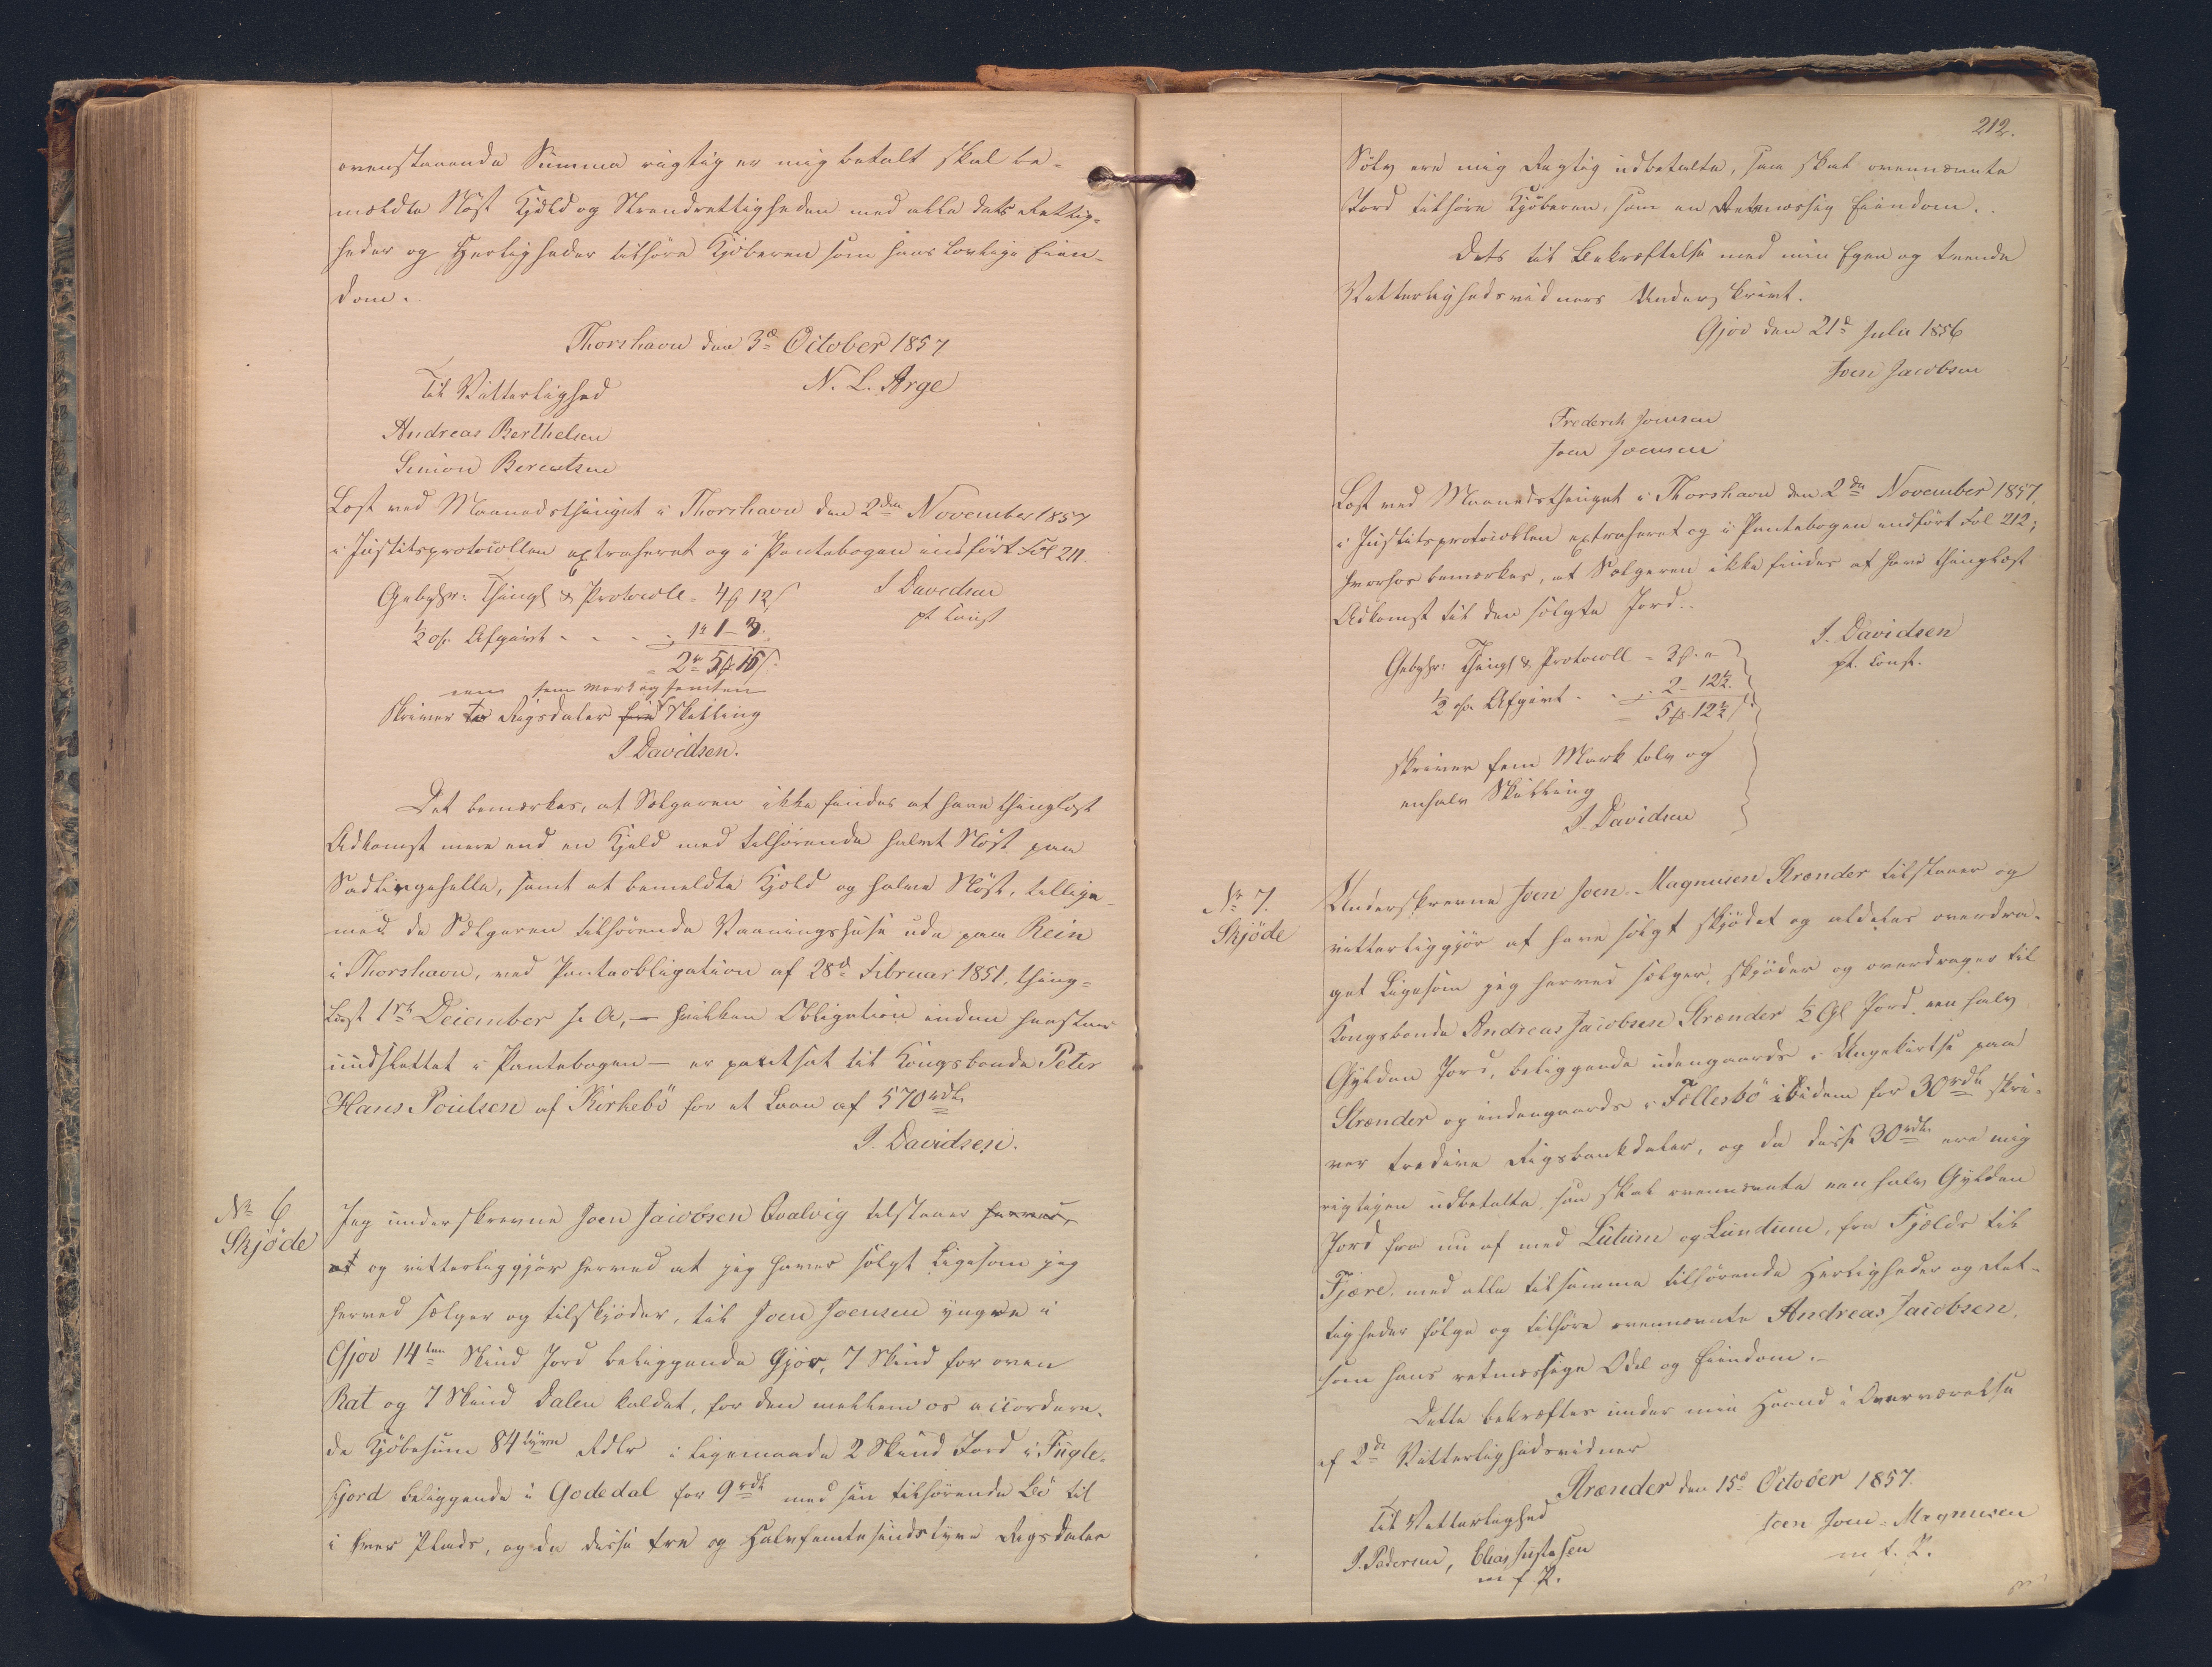 ovenstaaende Summa rigtig er mig betalt skal be-
meldte Nöst Kjeld og Strandrettigheden med alle dets Rettig-
heder og Herligheder tilhöre Kjöberen som hans lovlige Eien-
dom.
Thorshavn den 3d October 1857
Til Vitterlighed
N. L. Arge
Andreas Berthelsen
Simion Berentsen
Læst ved Maanedsthinget i Thorshavn den 2den November 1857
i Justitsprotocollen extraheret og i Pantebogen indfört Fol 211.
Gebyhr: Thingl & Protocoll - 4 12
J Davidsen
½ % Afgivt - - - 1 1 - 3
pt Const
= 2 5 15
een fem Mark og femten
Skriver to Rigsdaler Skilling
J Davidsen.
Det bemærkes, at Sælgeren ikke findes at have thinglæst
Adkomst mere end en Kjeld med tilhörende halvt Nöst paa
samt at bemeldte Kjeld og halve Nöst, tillige
med de Sælgeren tilhörende Vaaningshuse ude paa Rein
i Thorshavn, ved Panteobligation af 28d Februar 1851, thing-
læst 1ste December s. A, — hvilken Obligation endnu henstaar
uudslettet i Pantebogen — er pantsat til Kongsbonde Peter
Hans Poulsen af Kirkebö for et Laan af 570 rdl.
J. Davidsen.
No 6
Skjöde
Jeg underskrevne Joen Jacobsen Qvalvig tilstaaer herved,
at og vitterliggjör herved at jeg haver solgt ligesom jeg
herved sælger og tilskjöder, til Joen Joensen yngre i
Gjov 14ten Skind Jord beliggende Gjov, 7 Skind for oven
Rat og 7 Skind Dalen kaldet, for den mellem os accordere-
de Kjöbesum 84 Rdlr i ligemaade 2 Skind Jord i Fugle-
fjord beliggende i Godedal for 9 rdl med sin tilhörende Bö til
i hver Plads, og da disse tre og Halvfemtesindstyve Rigsdaler
212.
Sölv ere mig Rigtig udbetalte, saa skal ovennævnte
Jord tilhöre Kjöberen, som en Retmæssig Eiendom.
Dets til Bekræftelse med min Egen og tvende
Vitterlighedsvidners Underskrivt.
Gjov den 21d Julii 1856
Joen Jacobsen
Frederik Joensen
Joen Joensen
Læst ved Maanedsthinget i Thorshavn den 2den November 1857,
i Justitsprotocollen extraheret og i Pantebogen indfört Fol 212;
hvorhos bemærkes, at Sælgeren ikke findes at have thinglæst
Adkomst til den solgte Jord.
J. Davidsen
pt. Const.
Gebyhr: Thingl & Protocoll - 3 "
½ % Afgivt - - 2 - 12½
= 5 12½
skriver fem Mark tolv og
enhalv Skilling
J. Davidsen
No 7.
Skjöde
Underskrevne Joen Joen-Magnusen Strænder tilstaaer og
vitterliggjör at have solgt skjödet og aldeles overdra-
get ligesom jeg herved sælger, skjöder og overdrager til
Kongsbonde Andreas Jacobsen Strænder ½ Gl Jord een halv
Gylden Jord, beliggende udengaards i paa
Strænder og indengaards i Fellesbö ibidem for 30 rdl skri-
ver tredive Rigsbankdaler, og da disse 30 rdl. ere mig
rigtigen udbetalte, saa skal ovennævnte een halv Gylden
Jord fra nu af med Lutum og Lundum, fra Fjelde til
Fjære, med alle tilsamme tilhörende Herligheder og Ret-
tigheder fölge og tilhöre ovennævnte Andreas Jacobsen,
som hans retmæssige Odel og Eiendom.
Dette bekræftes under min Haand i Overværelse
af 2de Vitterlighedsvidner
Strænder den 15d October 1857.
Til Vitterlighed
Joen Joen-Magnusen
m. f. P.
P. Pedersen, Elias Justesen
m f P.